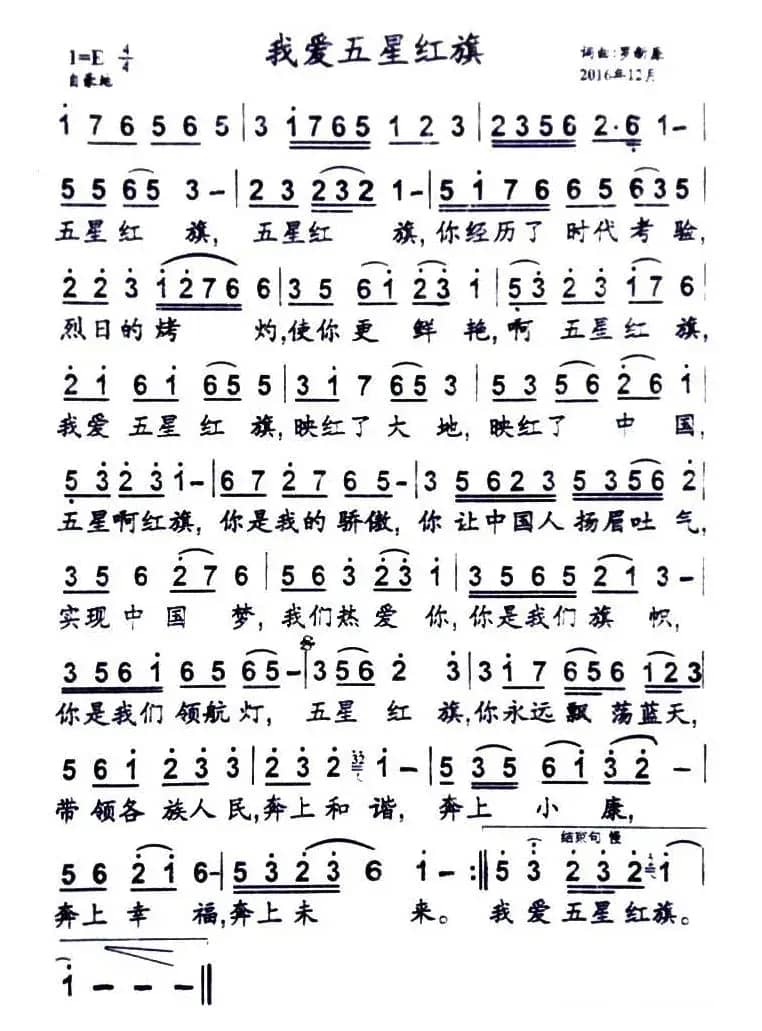 我爱五星红旗
1=E 4/4
自豪地
词曲:罗新康
2016年12月
1 7 6 5 6 5 | 3 1765 1 2 3 | 2356 2·6 1– |
5 5 65 3– | 2 3 232 1– | 5 1 7 6 6 5 635 |
五星红 旗, 五星红 旗,你经历了 时代考验,
2 2 3 1276 6 | 3 5 61 23 1 | 53 2 3 17 6
烈日的烤 灼,使你更 鲜 艳,啊 五星红旗,
2 1 6 1 65 5 | 3 1 7 65 3 | 5 3 56 26 1
我爱五星红 旗,映红了大 地,映红了 中 国,
5 3 2 3 1– | 6 7 2 7 6 5– | 3 5 6 2 3 5 356 2
五星啊红旗,你是我的骄傲,你 让中国人扬眉吐气,
3 5 6 27 6 | 5 6 3 23 1 | 3 5 6 5 21 3– |
实现中国 梦,我们热爱 你,你是我们旗 帜,
3 5 6 1 6 5 65– | 3 56 2 3 | 3 1 7 656 123
你是我们领航灯, 五星红 旗,你永远飘荡蓝天,
5 6 1 2 3 3 | 2 3 2 1– | 5 35 61 32 |
带领各族人民,奔上和谐,奔上 小 康,
结束句 慢
5 6 21 6– | 5 3 2 3 6 1– :‖ 5 3 2 3 2 1
奔上幸 福,奔上未 来。 我爱五星红旗。
1 – – – ‖